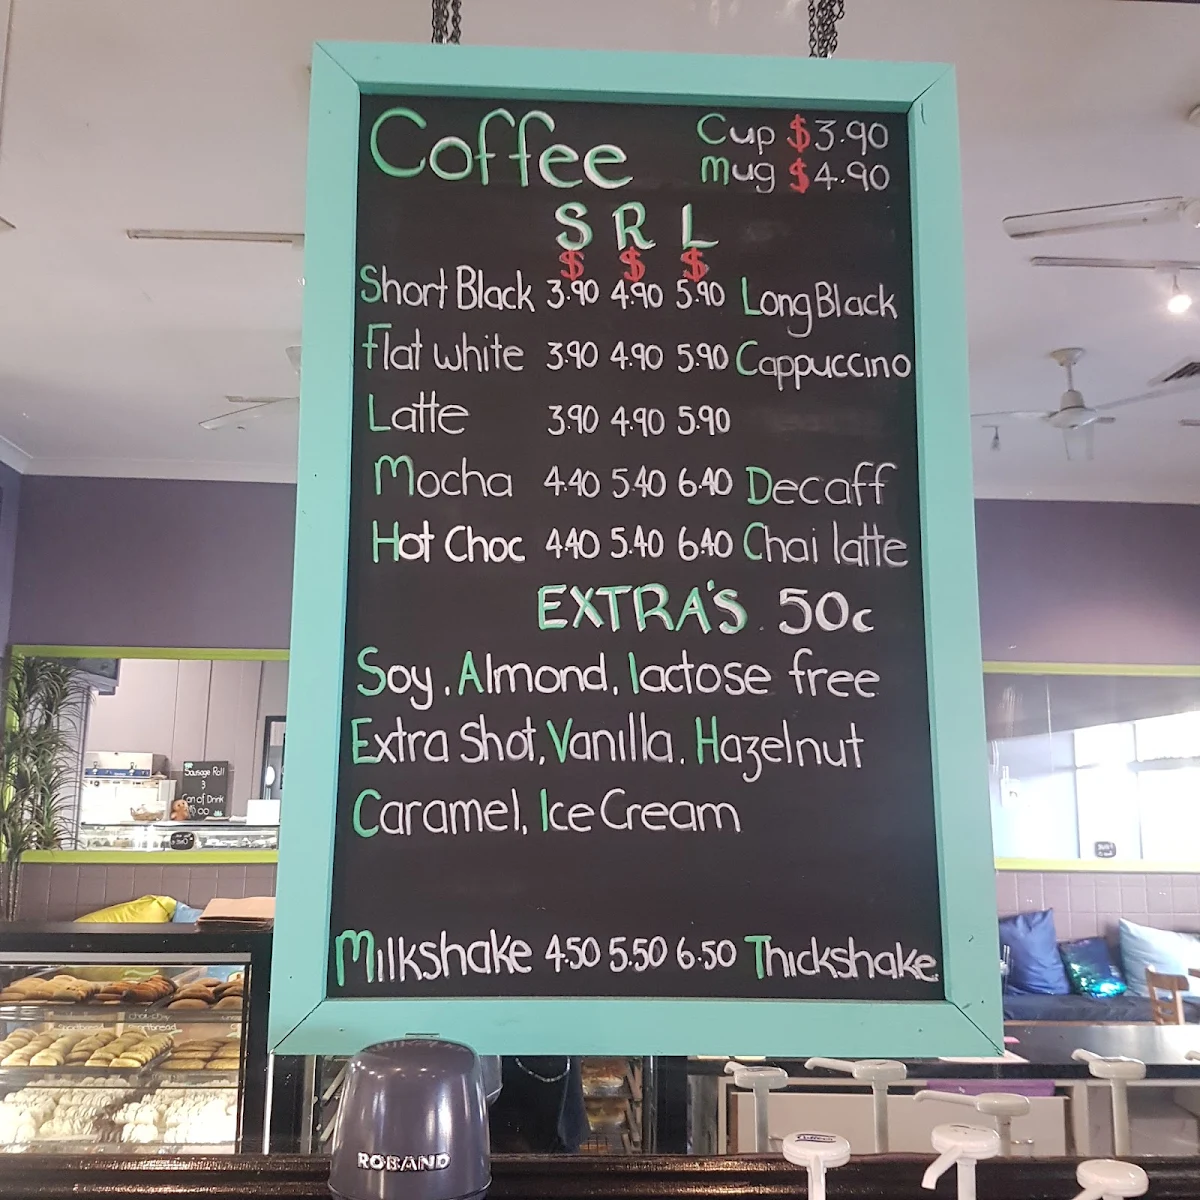 Coffee Cup $3.90
Mug $4.90
S R L
$ $ $
Short Black 3.90 4.90 5.90 Long Black
Flat white 3.90 4.90 5.90 Cappuccino
Latte 3.90 4.90 5.90
Mocha 4.40 5.40 6.40 Decaff
Hot Choc 4.40 5.40 6.40 Chai latte
EXTRA'S 50c
Soy, Almond, lactose free
Extra Shot, Vanilla, Hazelnut
Caramel, Ice Cream
Milkshake 4.50 5.50 6.50 Thickshake
Sausage Roll
3
Can of Drink
shortbread
ROBAND